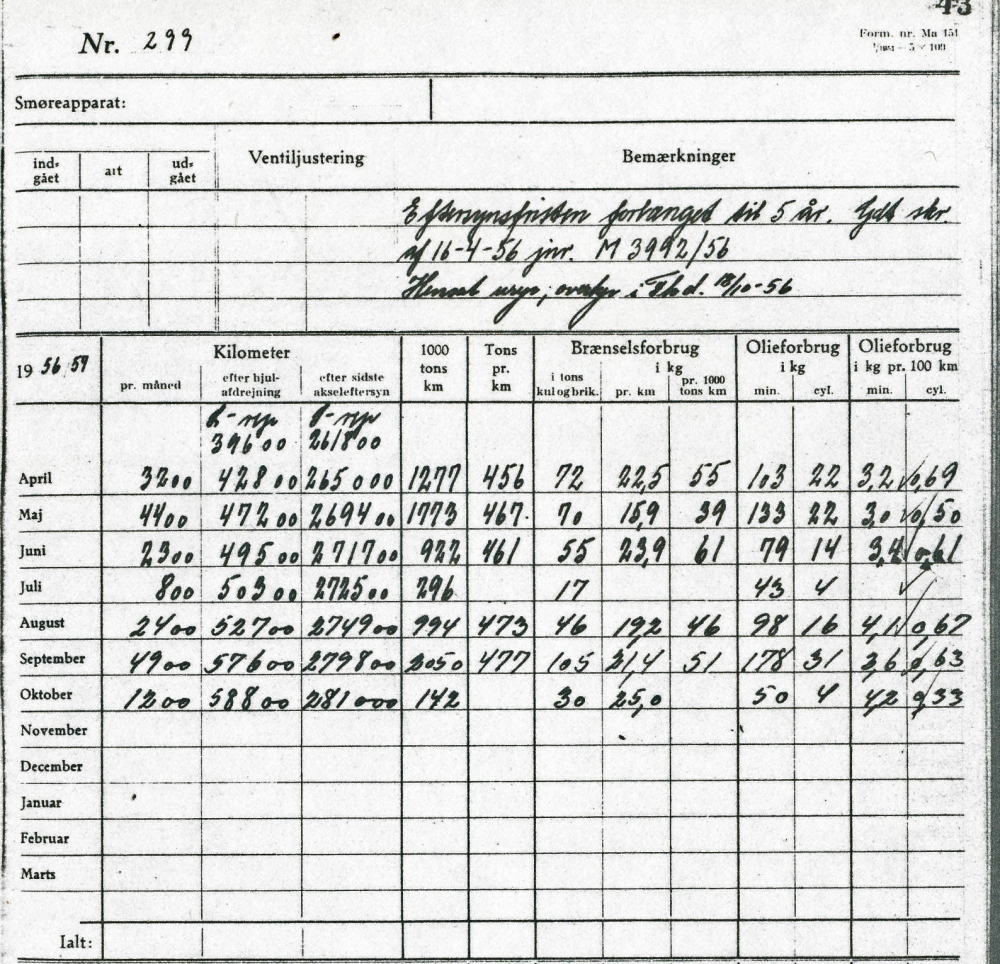 43
Nr. 299
Form. nr. Ma 151
Smøreapparat:
ind-gået art ud-gået Ventiljustering Bemærkninger
Eftersynsfristen forlænget til 5 år. Gdt skr
af 16-4-56 jnr. M 3992/56
Hensat i Fhd. 18/10-56
19 56/57 Kilometer 1000 tons km Tons pr. km Brænselsforbrug i kg Olieforbrug i kg Olieforbrug i kg pr. 100 km
pr. måned efter hjul-afdrejning efter sidste akseleftersyn i tons kul og brik. pr. km pr. 1000 tons km min. cyl. min. cyl.
39600 261800
April 3200 42800 265000 1277 456 72 22,5 55 103 22 3,2 0,69
Maj 4400 47200 269400 1773 467 70 15,9 39 133 22 3,0 0,50
Juni 2300 49500 271700 922 461 55 23,9 61 79 14 3,4 0,61
Juli 800 50300 272500 296 17 43 4
August 2400 52700 274900 994 473 46 19,2 46 98 16 4,1 0,67
September 4900 57600 279800 2050 477 105 21,4 51 178 31 3,6 0,63
Oktober 1200 58800 281000 142 30 25,0 50 4 4,2 0,33
November
December
Januar
Februar
Marts
Ialt: